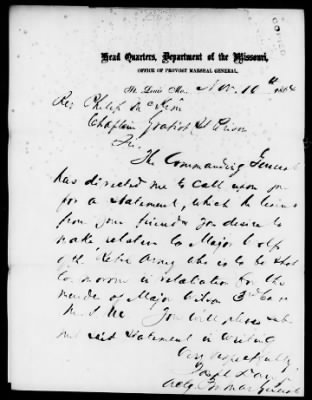 Head Quarters, Department of the Missouri,
OFFICE OF PROVOST MARSHAL GENERAL,
St. Louis Mo. Nov. 10th 1864
Rev Philip Mc Kim
Chaplain Gratiot St Prison
Sir.
The Commanding General
has directed me to call upon you
for a statement, which he learns
from your friends you desire to
make relative to Major Wolf
of the Rebel Army who is to be shot
tomorrow in retaliation for the
murder of Major Wilson 3rd Cav
M. S. M. You will please sub
mit said statement in writing
Very respectfully
Joseph Darr
Actg Provost Mar General